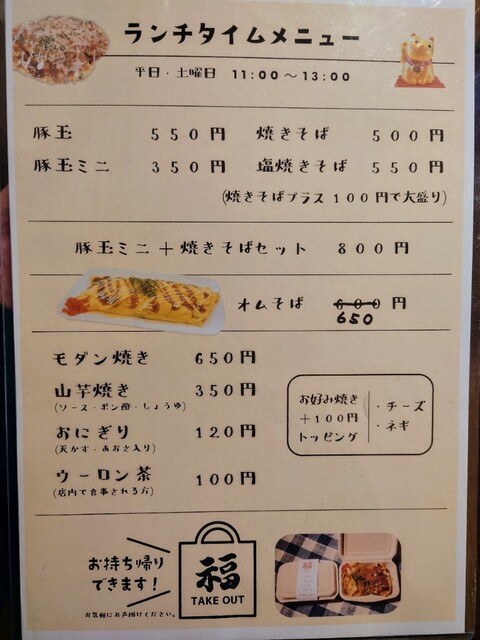 ランチタイムメニュー
平日・土曜日 11:00～13:00
豚玉 550円 焼きそば 500円
豚玉ミニ 350円 塩焼きそば 550円
(焼きそばプラス100円で大盛り)
豚玉ミニ＋焼きそばセット 800円
オムそば 600円
650
モダン焼き 650円
山芋焼き 350円
(ソース・ポン酢・しょうゆ)
おにぎり 120円
(天かす・あおさ入り)
ウーロン茶 100円
(店内で食事される方)
お好み焼き
＋100円
トッピング
・チーズ
・ネギ
お持ち帰り
できます！
お気軽にお声掛けください。
福
TAKE OUT